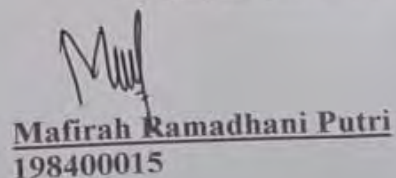 Mafirah Ramadhani Putri
198400015